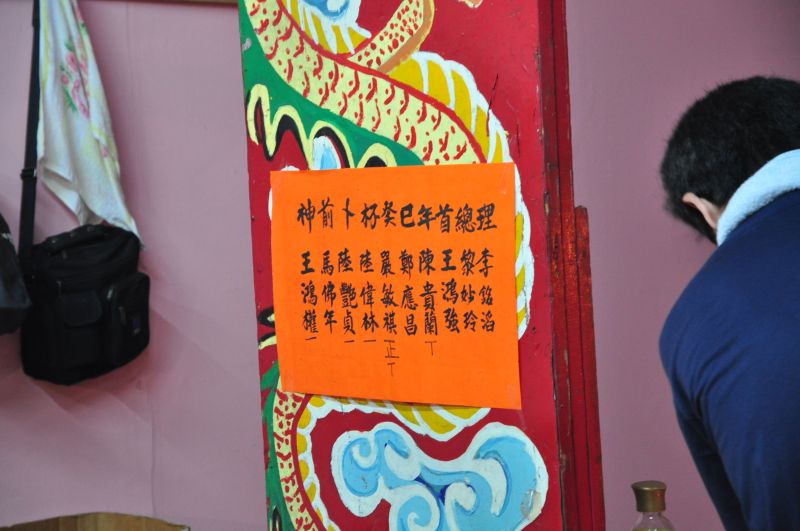 神前卜杯癸巳年首總理
王鴻權 一
馬佛年
陸艷貞 一
陸偉林 一
嚴敏祺 正丅
鄭應昌
陳貴蘭 丅
王鴻強
黎妙玲
李銘滔